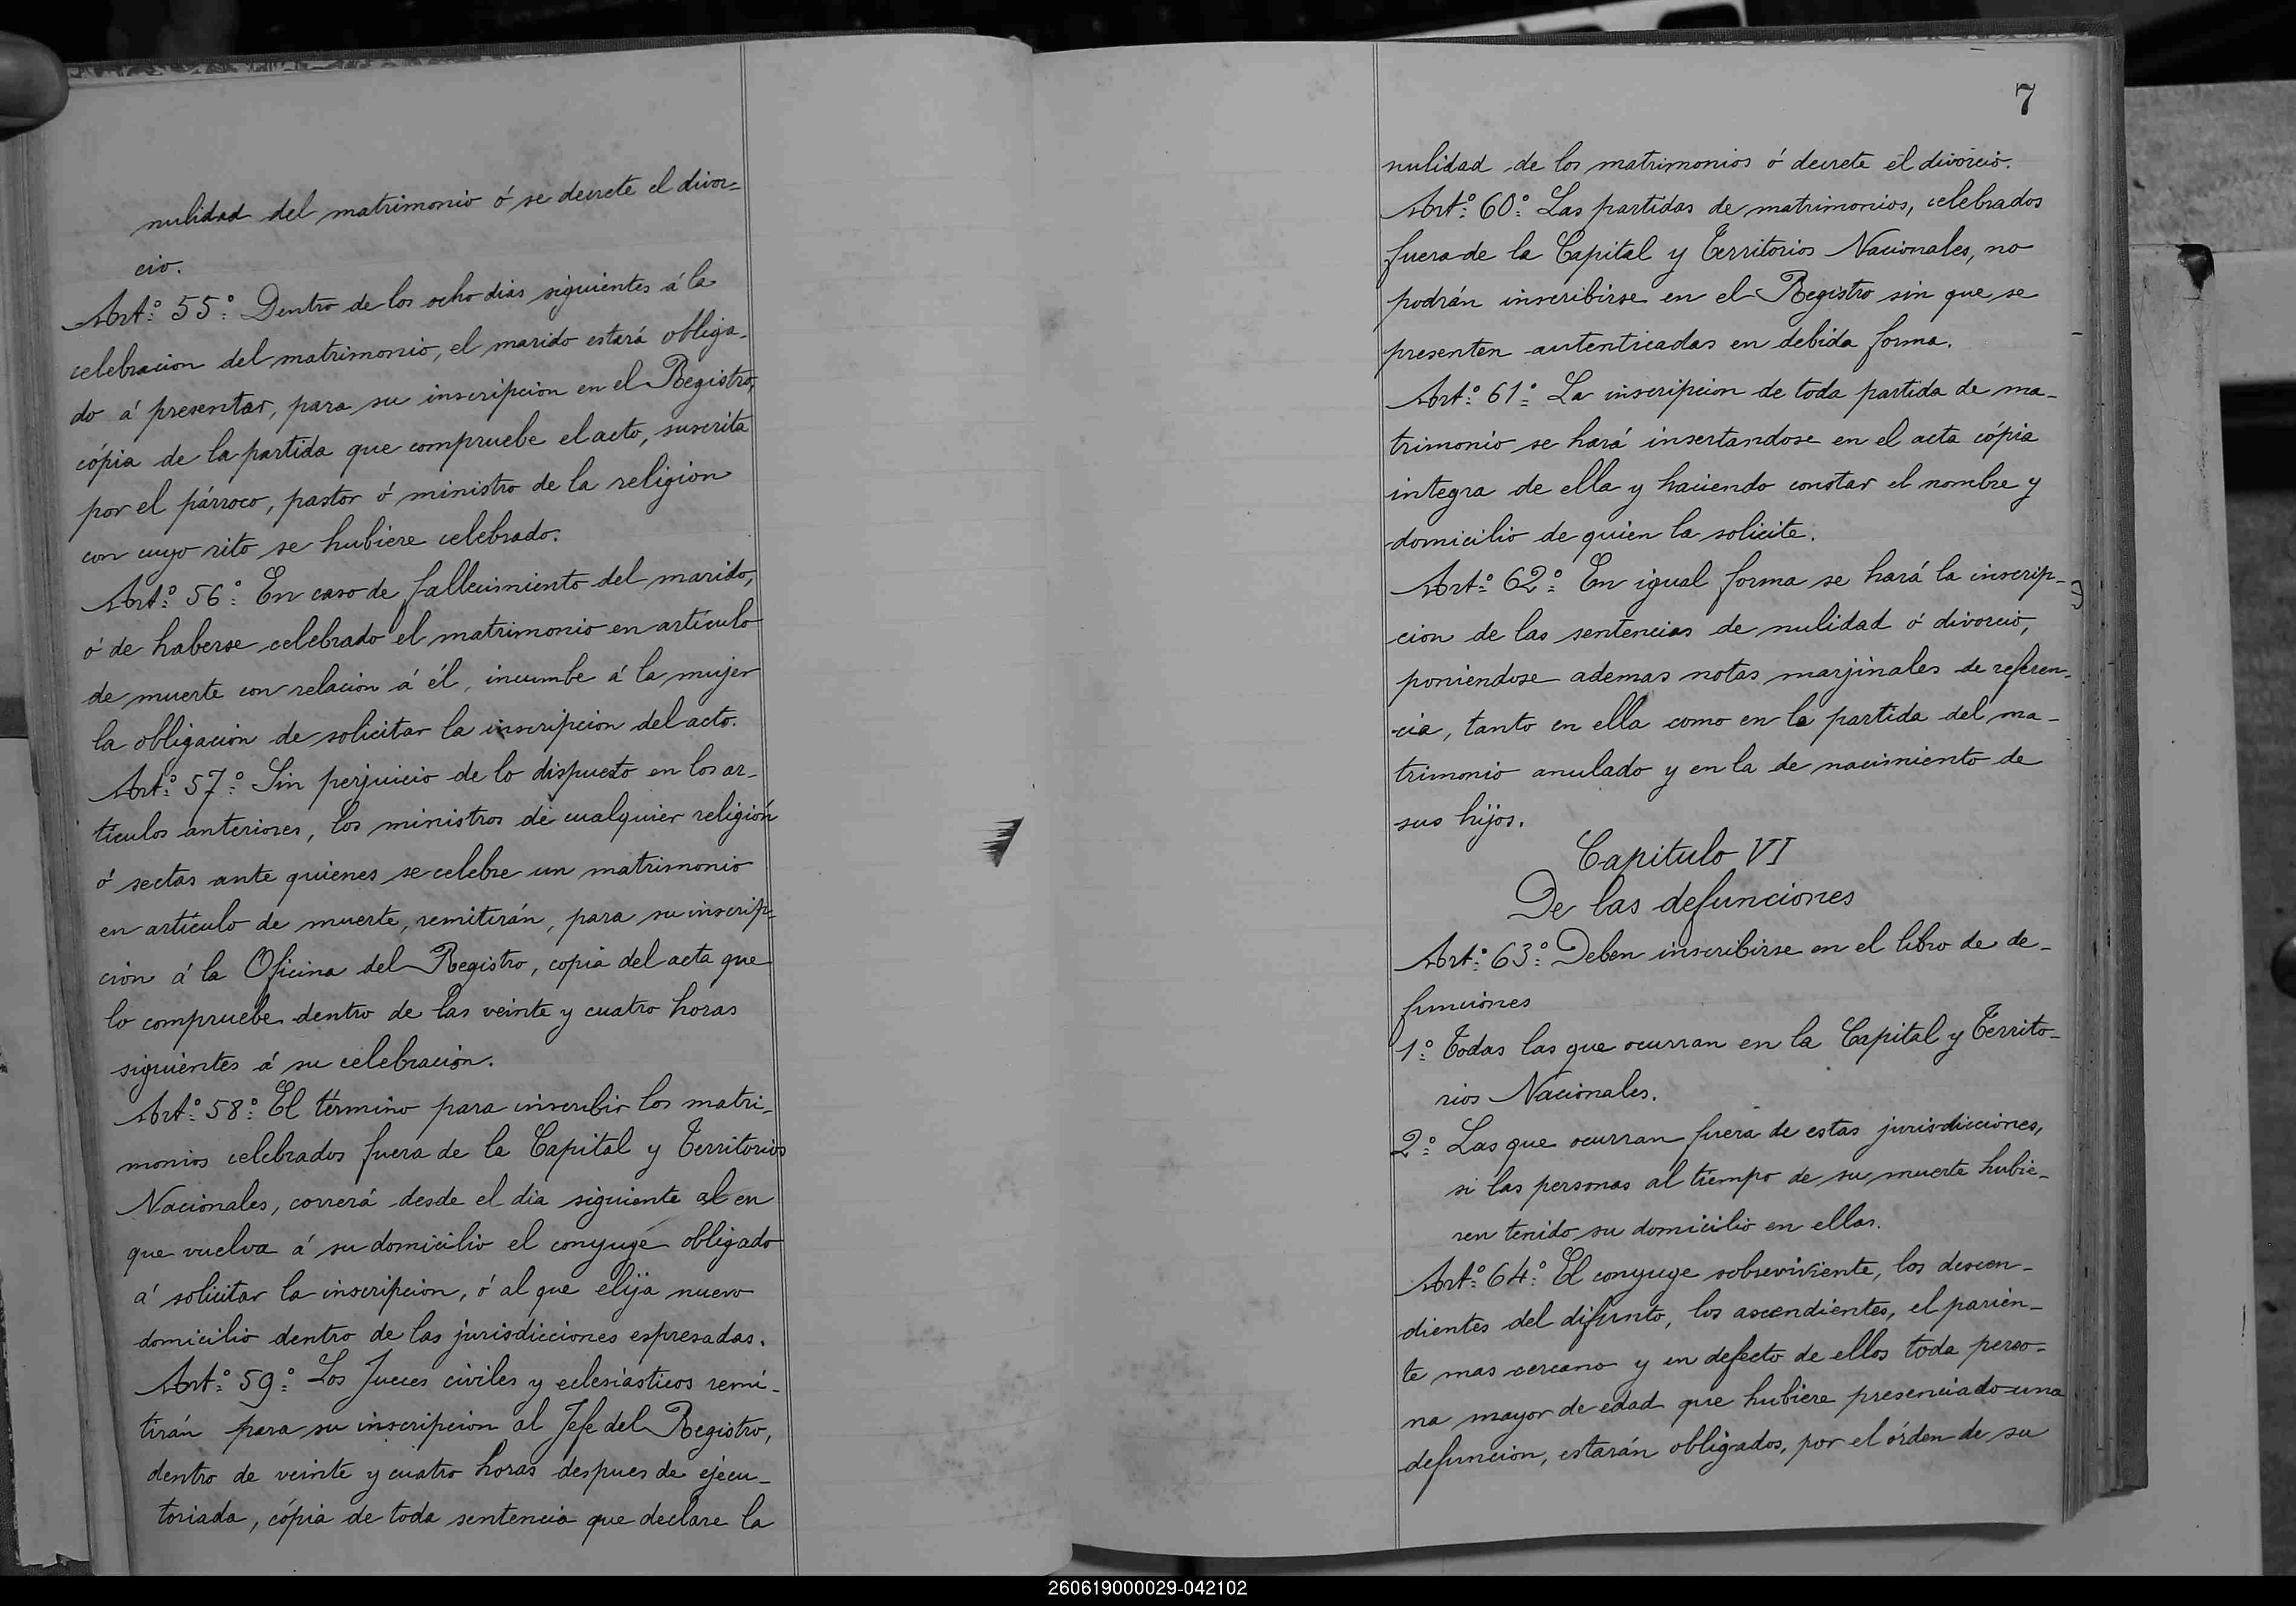 nulidad del matrimonio ó se decrete el divor=
cio.
Artº 55º Dentro de los ocho dias siguientes á la
celebracion del matrimonio, el marido estará obliga-
do á presentar, para su inscripcion en el Registro,
cópia de la partida que compruebe el acto, suscrita
por el párroco, pastor ó ministro de la religion
con cuyo rito se hubiere celebrado.
Artº 56º En caso de fallecimiento del marido,
ó de haberse celebrado el matrimonio en artículo
de muerte con relacion á él, incumbe á la mujer
la obligacion de solicitar la inscripcion del acto.
Artº 57º Sin perjuicio de lo dispuesto en los ar-
tículos anteriores, los ministros de cualquier religión
ó sectas ante quienes se celebre un matrimonio
en artículo de muerte, remitirán, para su inscrip-
ción á la Oficina del Registro, copia del acta que
lo compruebe dentro de las veinte y cuatro horas
siguientes á su celebracion.
Artº 58º El término para inscribir los matri-
monios celebrados fuera de la Capital y Territorios
Nacionales, correrá desde el dia siguiente al en
que vuelva á su domicilio el conyuge obligado
á solicitar la inscripcion, ó al que elija nuevo
domicilio dentro de las jurisdicciones espresadas.
Artº 59º Los Jueces civiles y eclesiásticos remi-
tirán para su inscripcion al Jefe del Registro,
dentro de veinte y cuatro horas despues de ejecu-
toriada, cópia de toda sentencia que declare la
7
nulidad de los matrimonios ó decrete el divorcio.
Artº 60º Las partidas de matrimonios, celebrados
fuera de la Capital y Territorios Nacionales, no
podrán inscribirse en el Registro sin que se
presenten autenticadas en debida forma.
Artº 61º La inscripcion de toda partida de ma-
trimonio se hará insertandose en el acta cópia
integra de ella y haciendo constar el nombre y
domicilio de quien la solicite.
Artº 62º En igual forma se hará la inscrip-
cion de las sentencias de nulidad ó divorcio,
poniendose ademas notas marjinales de referen-
cia, tanto en ella como en la partida del ma-
trimonio anulado y en la de nacimiento de
sus hijos.
Capitulo VI
De las defunciones
Artº 63º Deben inscribirse en el libro de de-
funciones
1º Todas las que ocurran en la Capital y Territo-
rios Nacionales.
2º Las que ocurran fuera de estas jurisdicciones,
si las personas al tiempo de su muerte hubie-
ren tenido su domicilio en ellas.
Artº 64º El conyuge sobreviviente, los descen-
dientes del difunto, los ascendientes, el parien-
te mas cercano y en defecto de ellos toda perso-
na mayor de edad que hubiere presenciado una
defuncion, estarán obligados, por el órden de su
260619000029-042102